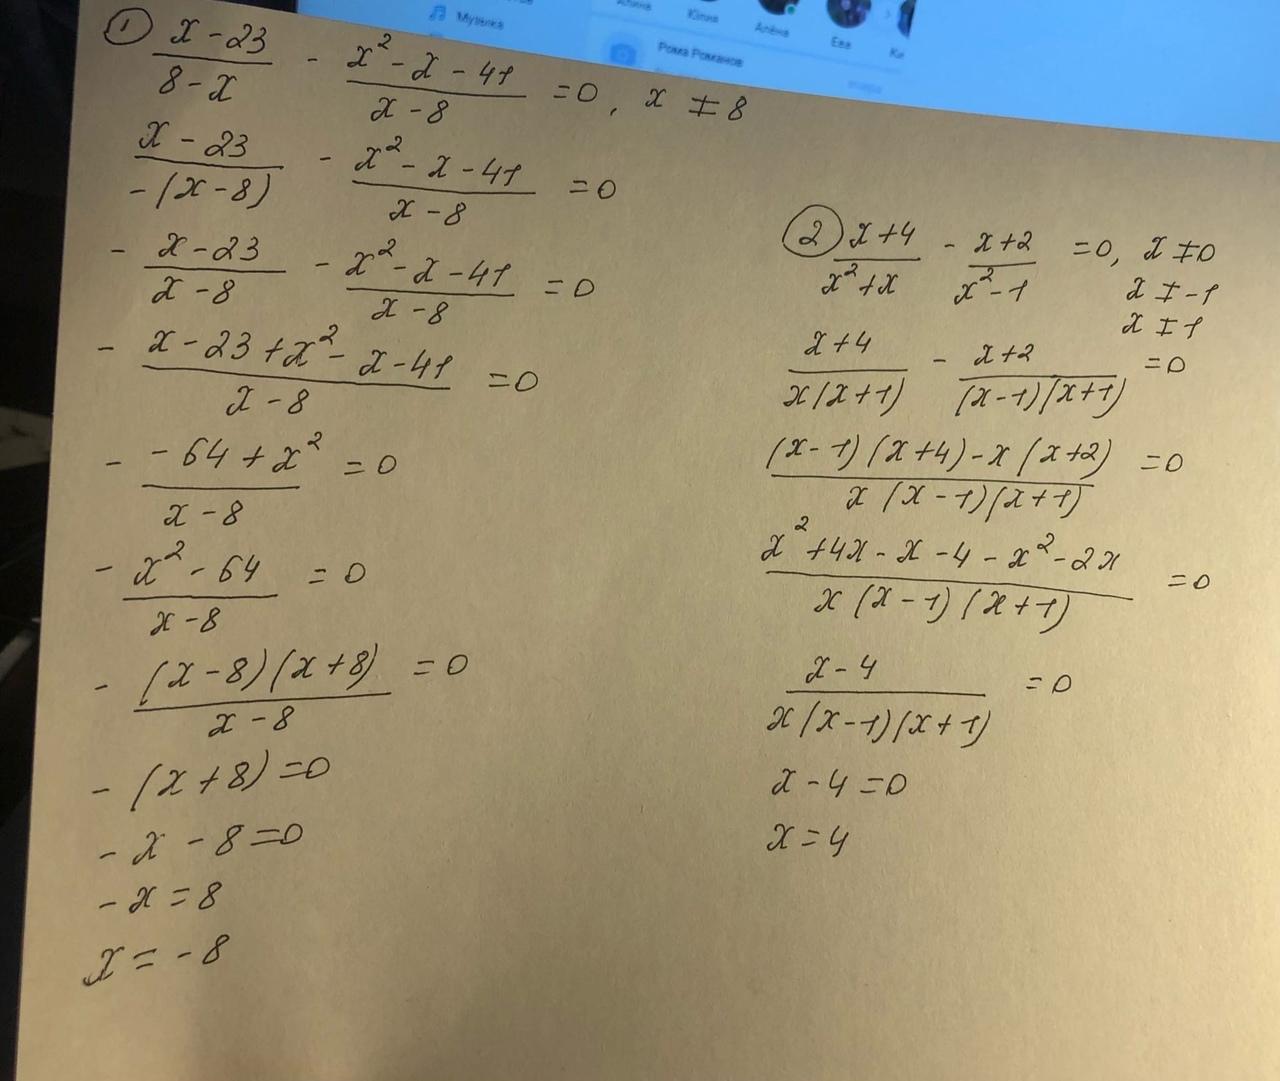 Музыка
Юлия
Алёна
Ева
Ки
Рома Романов
① (x - 23)/(8 - x) - (x² - x - 41)/(x - 8) = 0, x ≠ 8
(x - 23)/(-(x - 8)) - (x² - x - 41)/(x - 8) = 0
- (x - 23)/(x - 8) - (x² - x - 41)/(x - 8) = 0
- (x - 23 + x² - x - 41)/(x - 8) = 0
- (- 64 + x²)/(x - 8) = 0
- (x² - 64)/(x - 8) = 0
- ((x - 8)(x + 8))/(x - 8) = 0
- (x + 8) = 0
- x - 8 = 0
- x = 8
x = - 8
② (x + 4)/(x² + x) - (x + 2)/(x² - 1) = 0, x ≠ 0
x ≠ -1
x ≠ 1
(x + 4)/(x(x + 1)) - (x + 2)/((x - 1)(x + 1)) = 0
((x - 1)(x + 4) - x(x + 2))/(x(x - 1)(x + 1)) = 0
(x² + 4x - x - 4 - x² - 2x)/(x(x - 1)(x + 1)) = 0
(x - 4)/(x(x - 1)(x + 1)) = 0
x - 4 = 0
x = 4